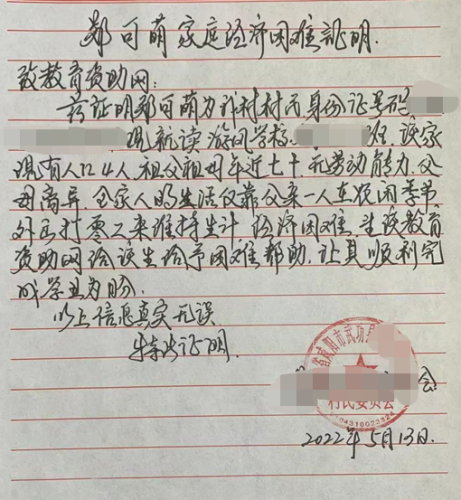 郑可萌家庭经济困难证明.
致教育资助网:
兹证明郑可萌为我村村民,身份证号码
现就读 学校, 班,该家
现有人口4人,祖父祖母年近七十,无劳动能力,父
母离异,全家人的生活仅靠父亲一人在农闲季节,
外出打零工来维持生计,经济困难,望该教育
资助网给该生给予困难帮助,让其顺利完
成学业为盼.
以上信息真实无误
特此证明.
省咸阳市武功县
会
村民委员会
2022年5月13日.